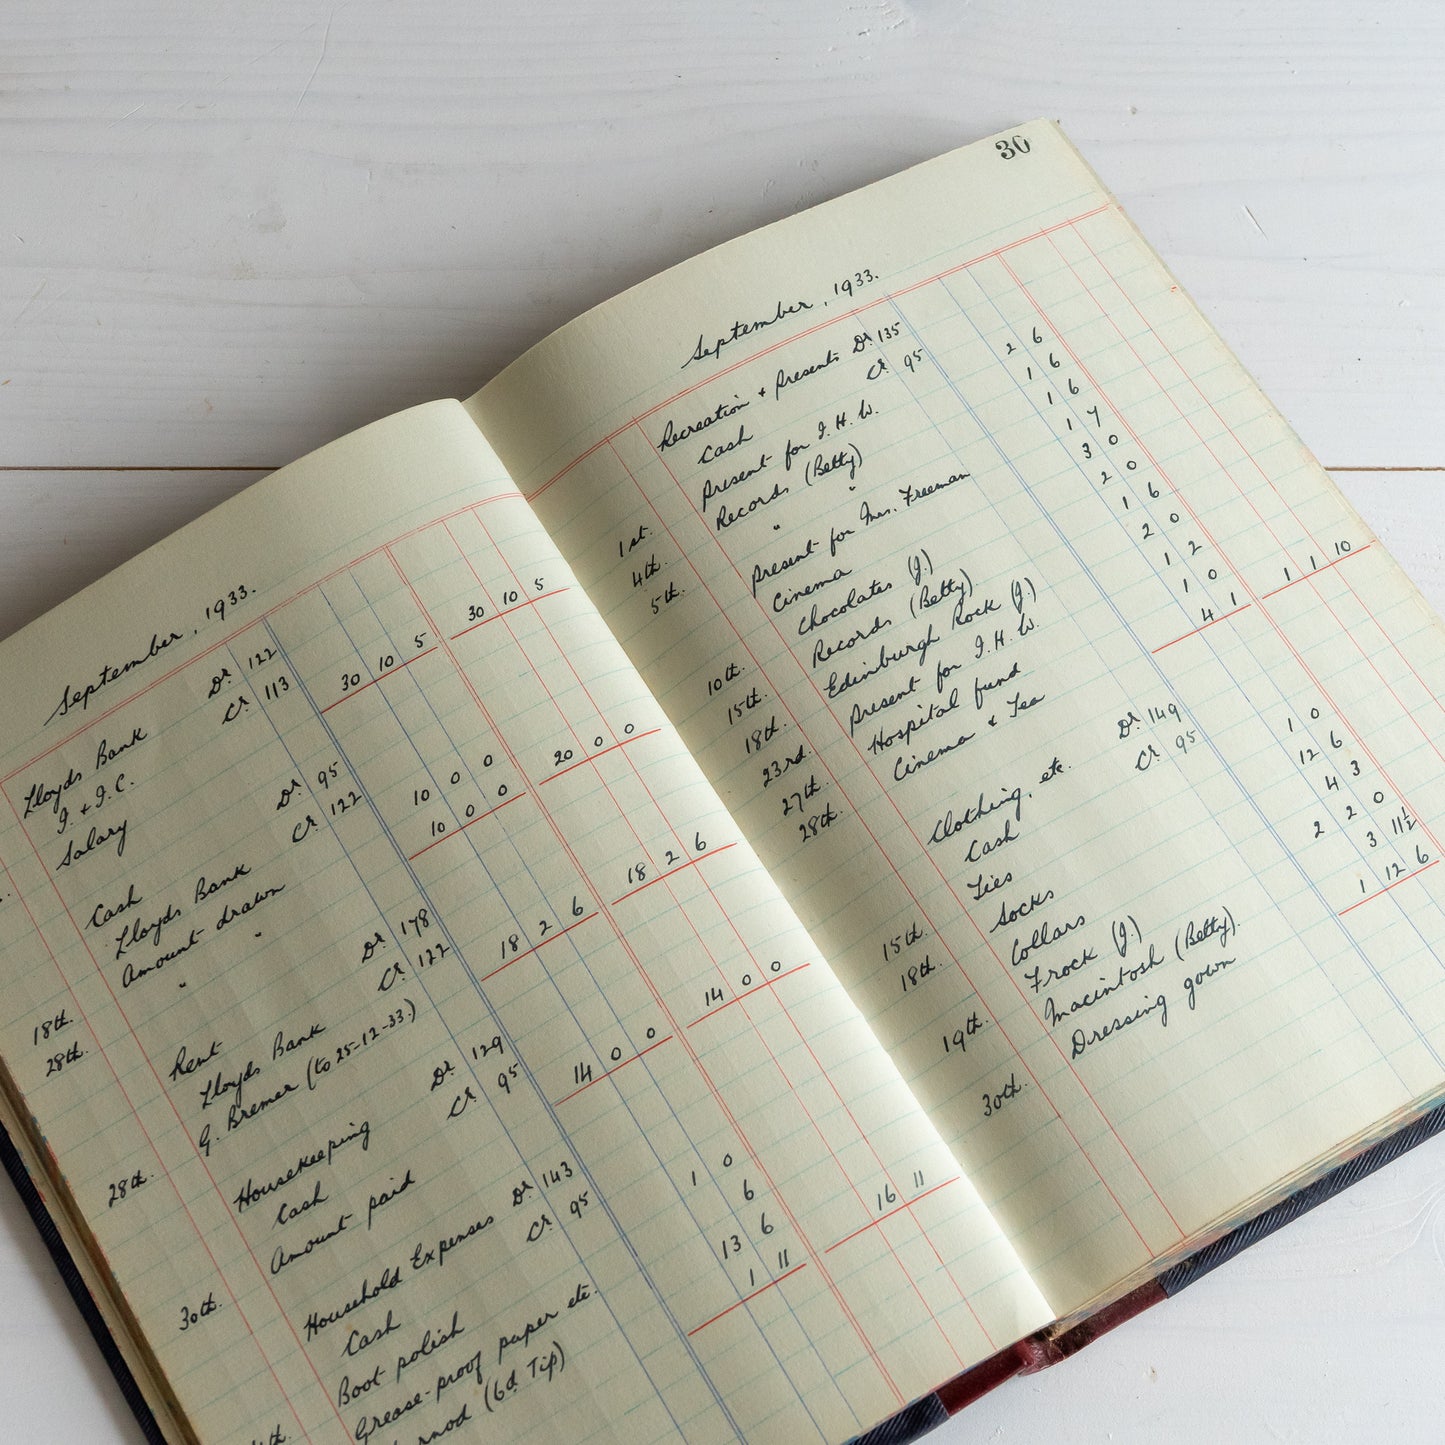 September, 1933.
Lloyds Bank Dr. 122
I. & I.C. Cr. 113
Salary 30 10 5 30 10 5
Cash Dr. 95
Lloyds Bank Cr. 122
18th. Amount drawn 10 0 0
28th. " " 10 0 0 20 0 0
Rent Dr. 178
Lloyds Bank Cr. 122
28th. G. Bremer (to 25-12-33.) 18 2 6 18 2 6
Housekeeping Dr. 129
Cash Cr. 95
30th. Amount paid 14 0 0 14 0 0
Household Expenses Dr. 143
Cash Cr. 95
Boot polish 1 0
Grease-proof paper etc. 6
(6d Tip) 13 6
1 11 16 11
30
September, 1933.
Recreation & Presents Dr. 135
Cash Cr. 95
1st. Present for I. H. W. 2 6
4th. Records (Betty) 1 6
5th. " " 1 6
Present for Mrs. Freeman 1 7
Cinema 3 0
10th. Chocolates (J.) 2 0
15th. Records (Betty) 1 6
18th. Edinburgh Rock (J.) 2 0
23rd. Present for I. H. W. 1 2
27th. Hospital fund 1 0
28th. Cinema & Tea 4 1 1 1 10
Clothing, etc. Dr. 149
Cash Cr. 95
15th. Ties 1 0
18th. Socks 12 6
Collars 4 3
19th. Frock (J.) 2 2 0
Macintosh (Betty). 3 11½
30th. Dressing gown 1 12 6